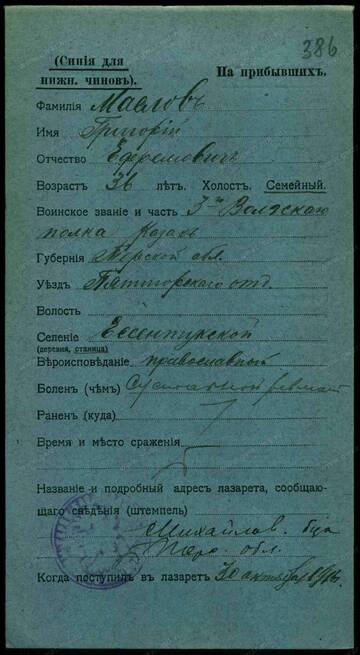 386
(Синія для
нижн. чиновъ).
На прибывшихъ.
Фамилія Масловъ
Имя Григорій
Отчество Ефремовичъ
Возрастъ 36 лѣтъ. Холост. Семейный.
Воинское званіе и часть 3го Волжскаго
полка Казакъ
Губернія Терской обл.
Уѣздъ Пятигорскаго отд.
Волость
Селеніе Ессентукской
(деревня, станица)
Вѣроисповѣданіе православный
Боленъ (чѣмъ) Суставной ревмат
Раненъ (куда)
Время и мѣсто сраженія
Названіе и подробный адресъ лазарета, сообщаю-
щаго свѣдѣнія (штемпель)
Михайлов. б-ца
обл.
Когда поступилъ въ лазаретъ 30 октября